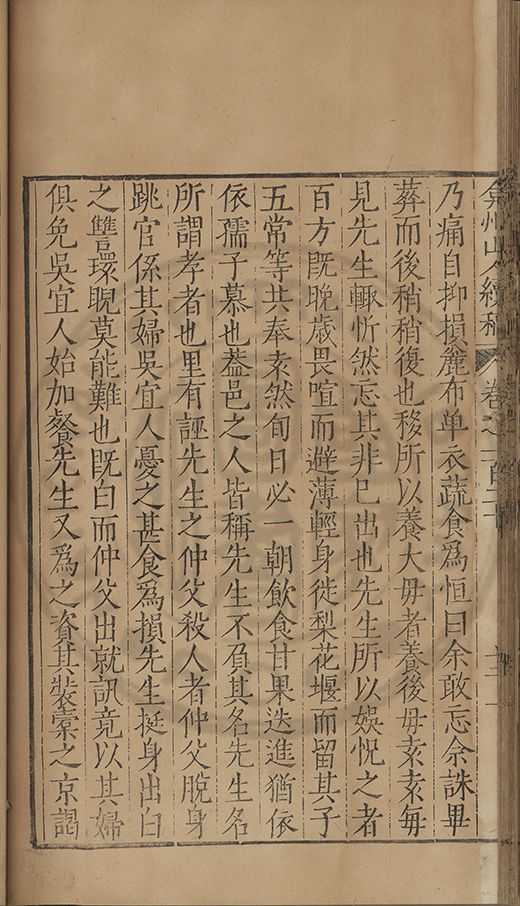 弇州山人續稿 卷之一百二十
乃痛自抑損麄布单衣蔬食為恒曰余敢忘余誅畢
葬而後稍稍復也移所以養大母者養後母素素每
見先生輙忻然忘其非巳出也先生所以娛恱之者
百方既晚歲畏喧而避薄輕身徙梨花堰而留其子
五常等共奉素然旬日必一朝飲食甘果迭進猶依
依孺子慕也葢邑之人皆稱先生不負其名先生名
所謂孝者也里有誣先生之仲父殺人者仲父脫身
跳官係其婦吳宜人憂之甚食為損先生挺身出白
之讐環睨莫能難也既白而仲父出就訊竟以其婦
俱免吳宜人始加餐先生又為之資其裝槖之京謁